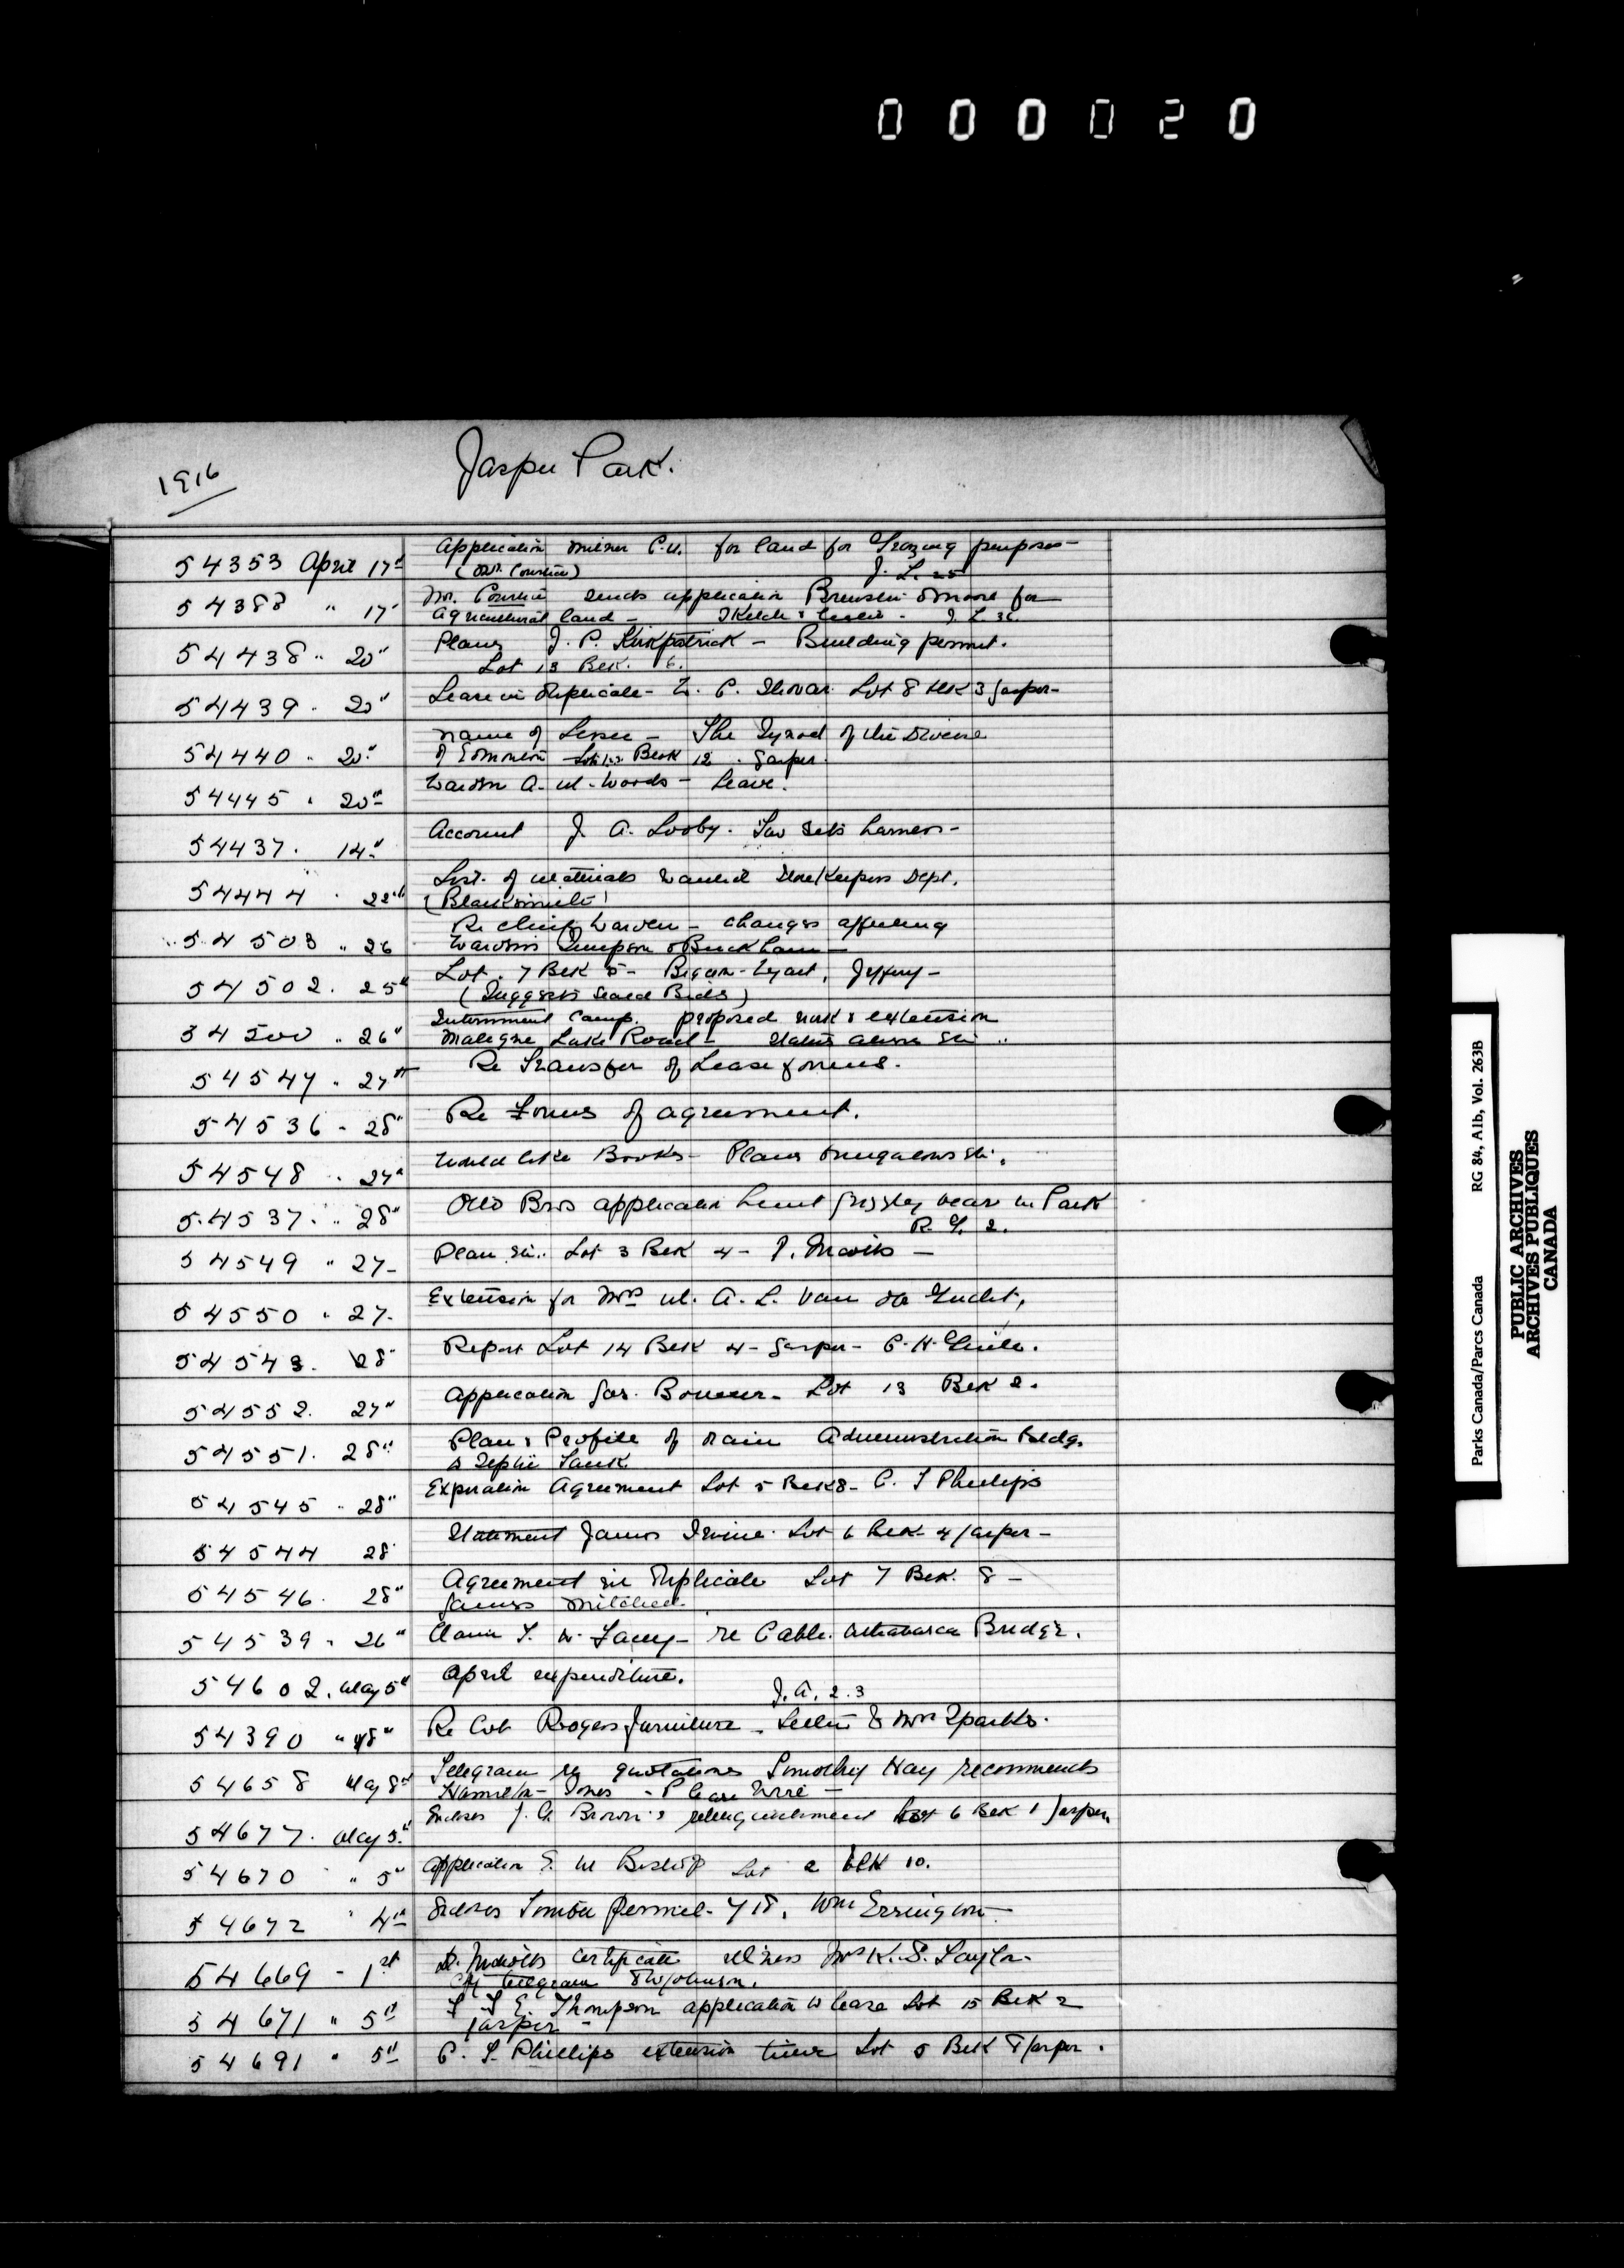 000020
1916
Jasper Park.
54353 April 17th Application Milner P.U. for land for Grazing purposes-
J. L. 25
54388 " 17" Mr. sends application Brewster & Moore for
Agricultural land - Sketch & Letter - J. L. 36.
54438 " 20" Plans J. P. Kirkpatrick - Building permit.
Lot 13 Blk. 6.
54439 . 20" Lease in Duplicate - Lot 8 Blk 3 Jasper-
54440 . 20" Name of Lessee - The Synod of the Diocese
of Edmonton Lots 1-2 Block 12 . Jasper.
54445 . 20th Warden A. M. Woods - Leave.
54437 . 14" Account J. A. Looby. Two sets harness-
54444 . 22nd List of materials wanted Storekeepers Dept.
(Blacksmith)
54503 " 26 Re Chief Warden - changes affecting
Wardens Simpson & Buckham -
54502 . 25" Lot . 7 Blk 5 - Bigcon-Wyatt, Jeffery -
(Suggests Sealed Bids)
54500 " 26" Internment Camp. proposed work & extension
Maligne Lake Road -
54547 . 27th Re Transfer of Lease forms.
54536 - 28" Re Forms of agreement.
54548 . 27" Would like Books - Plans Bungalows etc.
54537 . " 28" Otto Bros application hunt grizzley bear in Park
R. G. 2.
54549 " 27 - Plan etc. Lot 3 Blk 4 -
54550 " 27. Extension for Mrs M. A. L. Van der Gucht,
54543 . 28" Report Lot 14 Blk 4 - Jasper - C. H.
54552 . 27" Application Jas. Lot 13 Blk 2.
54551 . 28" Plan & Profile of drain Administration Bldg.
& Septic Tank
54545 . 28" Expiration Agreement Lot 5 Blk 8 - C. T Phillips
54544 28 Statement James Irvine. Lot 6 Blk. 4 Jasper -
54546 . 28" Agreement in Duplicate Lot 7 Blk. 8 -
James Mitchell.
54539 . 26" Claim T. W. Lacey - re Cable. Athabasca Bridge.
54602 . May 5" April expenditure.
J. A. 2.3
54390 " 18" Re Col. Rogers furniture - Letter to Mr Sparks.
54658 May 8th Telegram re quotations Timothy Hay recommends
Hamilton - Jones - Please Wire -
54677 . May 5" Encloses J. G. Brown's relinquishment Lot 6 Blk 1 Jasper
54670 " 5" Application S. M Bishop Lot 2 blk 10.
54672 " 4th Encloses Timber permit - 718, Wm Errington
54669 - 1st Dr. certificate illness Mrs K. S. Taylor.
Cpy telegram
54671 " 5" Thompson application to lease Lot 15 Blk 2
Jasper -
54691 " 5th C. T. Phillips extension time Lot 5 Blk 8 Jasper.
Parks Canada/Parcs Canada RG 84, A1b, Vol. 263B
PUBLIC ARCHIVES
ARCHIVES PUBLIQUES
CANADA